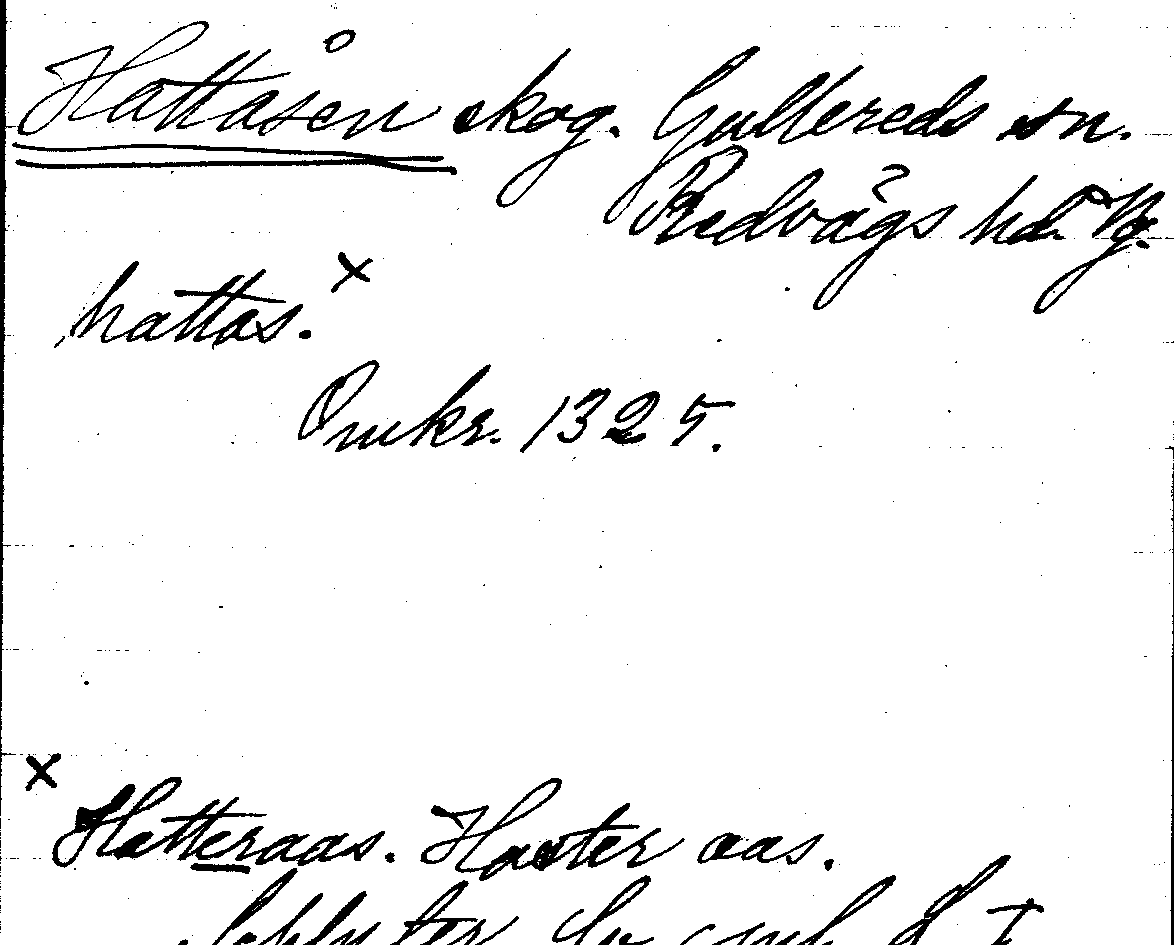 Hattåsen skog. Gullereds sn.
Redvägs hd. Vg.
hattas.×
Omkr. 1325.
× Hatteraas. Haater aas.